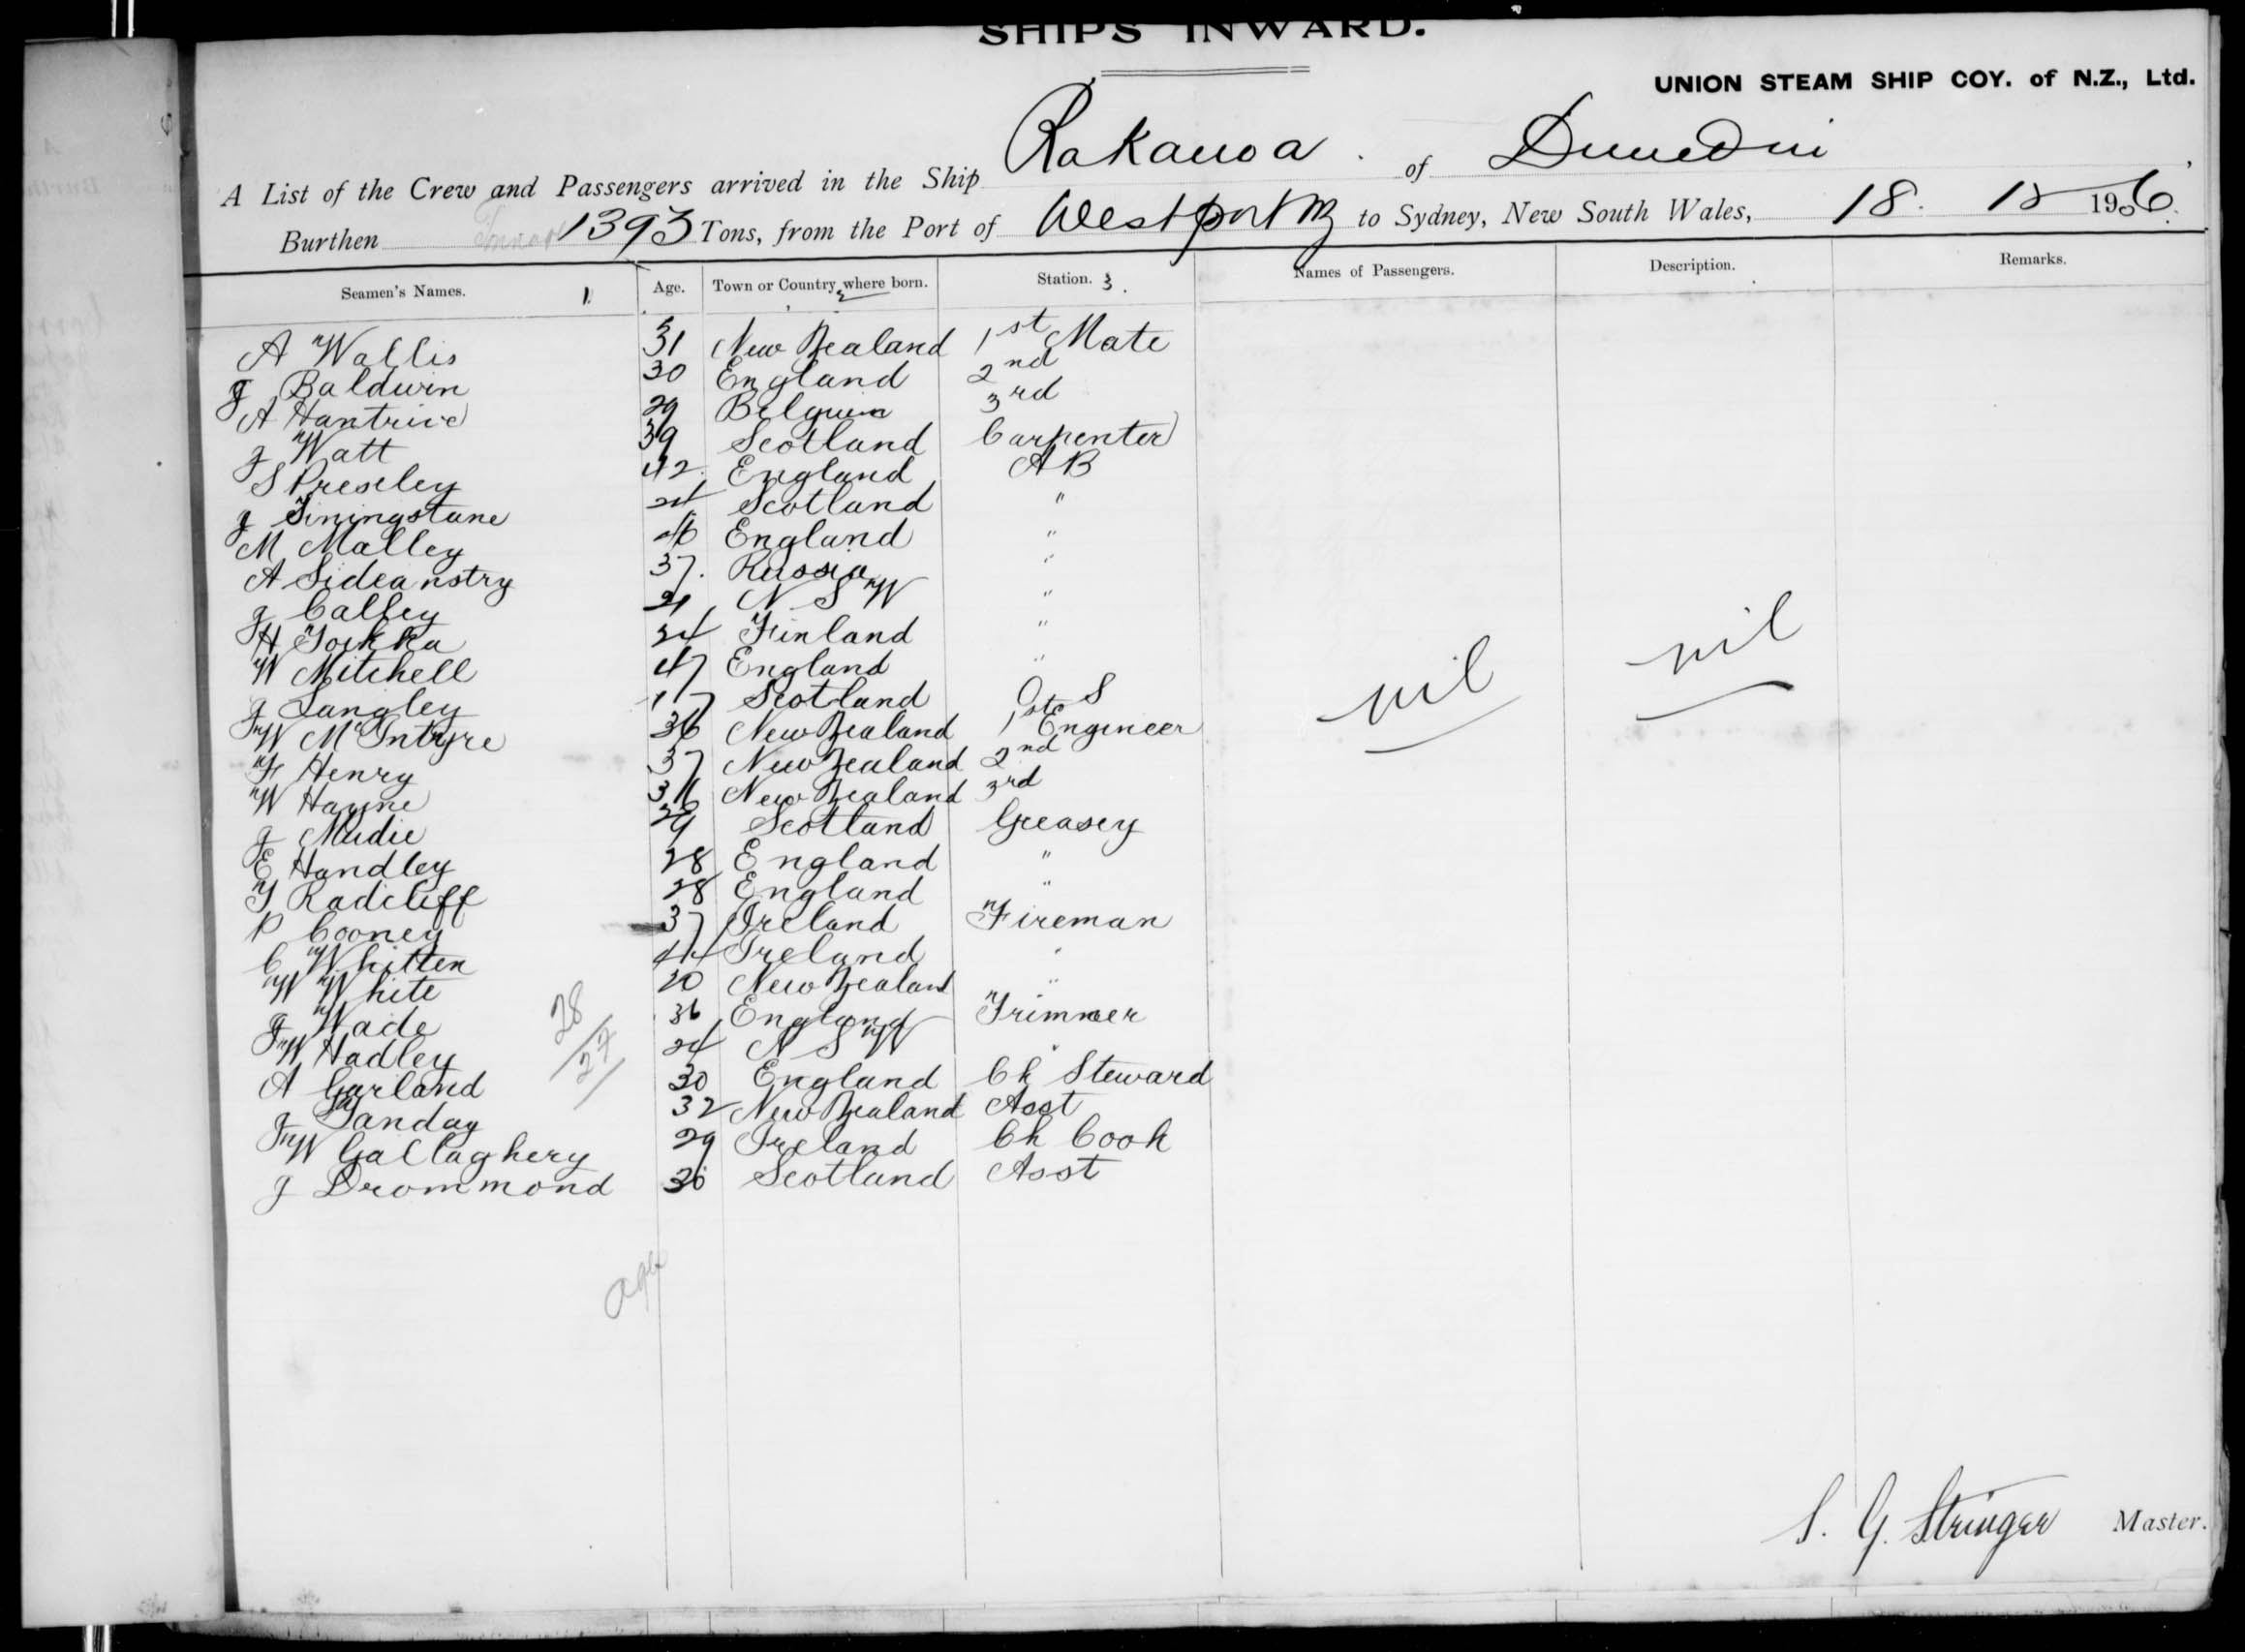 SHIPS INWARD.
UNION STEAM SHIP COY. of N.Z., Ltd.
A List of the Crew and Passengers arrived in the Ship Rakanoa of Dunedin,
Burthen 1393 Tons, from the Port of Westport NZ to Sydney, New South Wales, 18. 12 1906.
Seamen's Names. 1 Age. Town or Country where born. 2 Station. 3. Names of Passengers. Description. Remarks.
A Wallis 31 New Zealand 1st Mate
J Baldwin 30 England 2nd
A 29 Belguim 3rd
J Watt 39 Scotland Carpenter
S Preseley 42 England A B
J 24 Scotland "
M Malley 26 England "
A Sideanstry 37. Russia "
J 21 N S W "
H 24 Finland "
W Mitchell 47 England "
J Langley 17 Scotland O S
W McIntyre 36 New Zealand 1st Engineer
F Henry 37 New Zealand 2nd
W Hayne New Zealand 3rd
J Mudie 29 Scotland Greasey
E Handley 28 England "
T Radcliff 28 England "
P Cooney 37 Ireland Fireman
C Whitten 44 Ireland "
W White 20 New Zealand "
J Wade 36 England Trimmer
W Hadley 24 N S W "
A Garland 30 England Ch Steward
J Sanday 32 New Zealand Asst
W Gallaghery 29 Ireland Ch Cook
J Drommond 30 Scotland Asst
nil nil
28
27
age
S. G. Stringer Master.